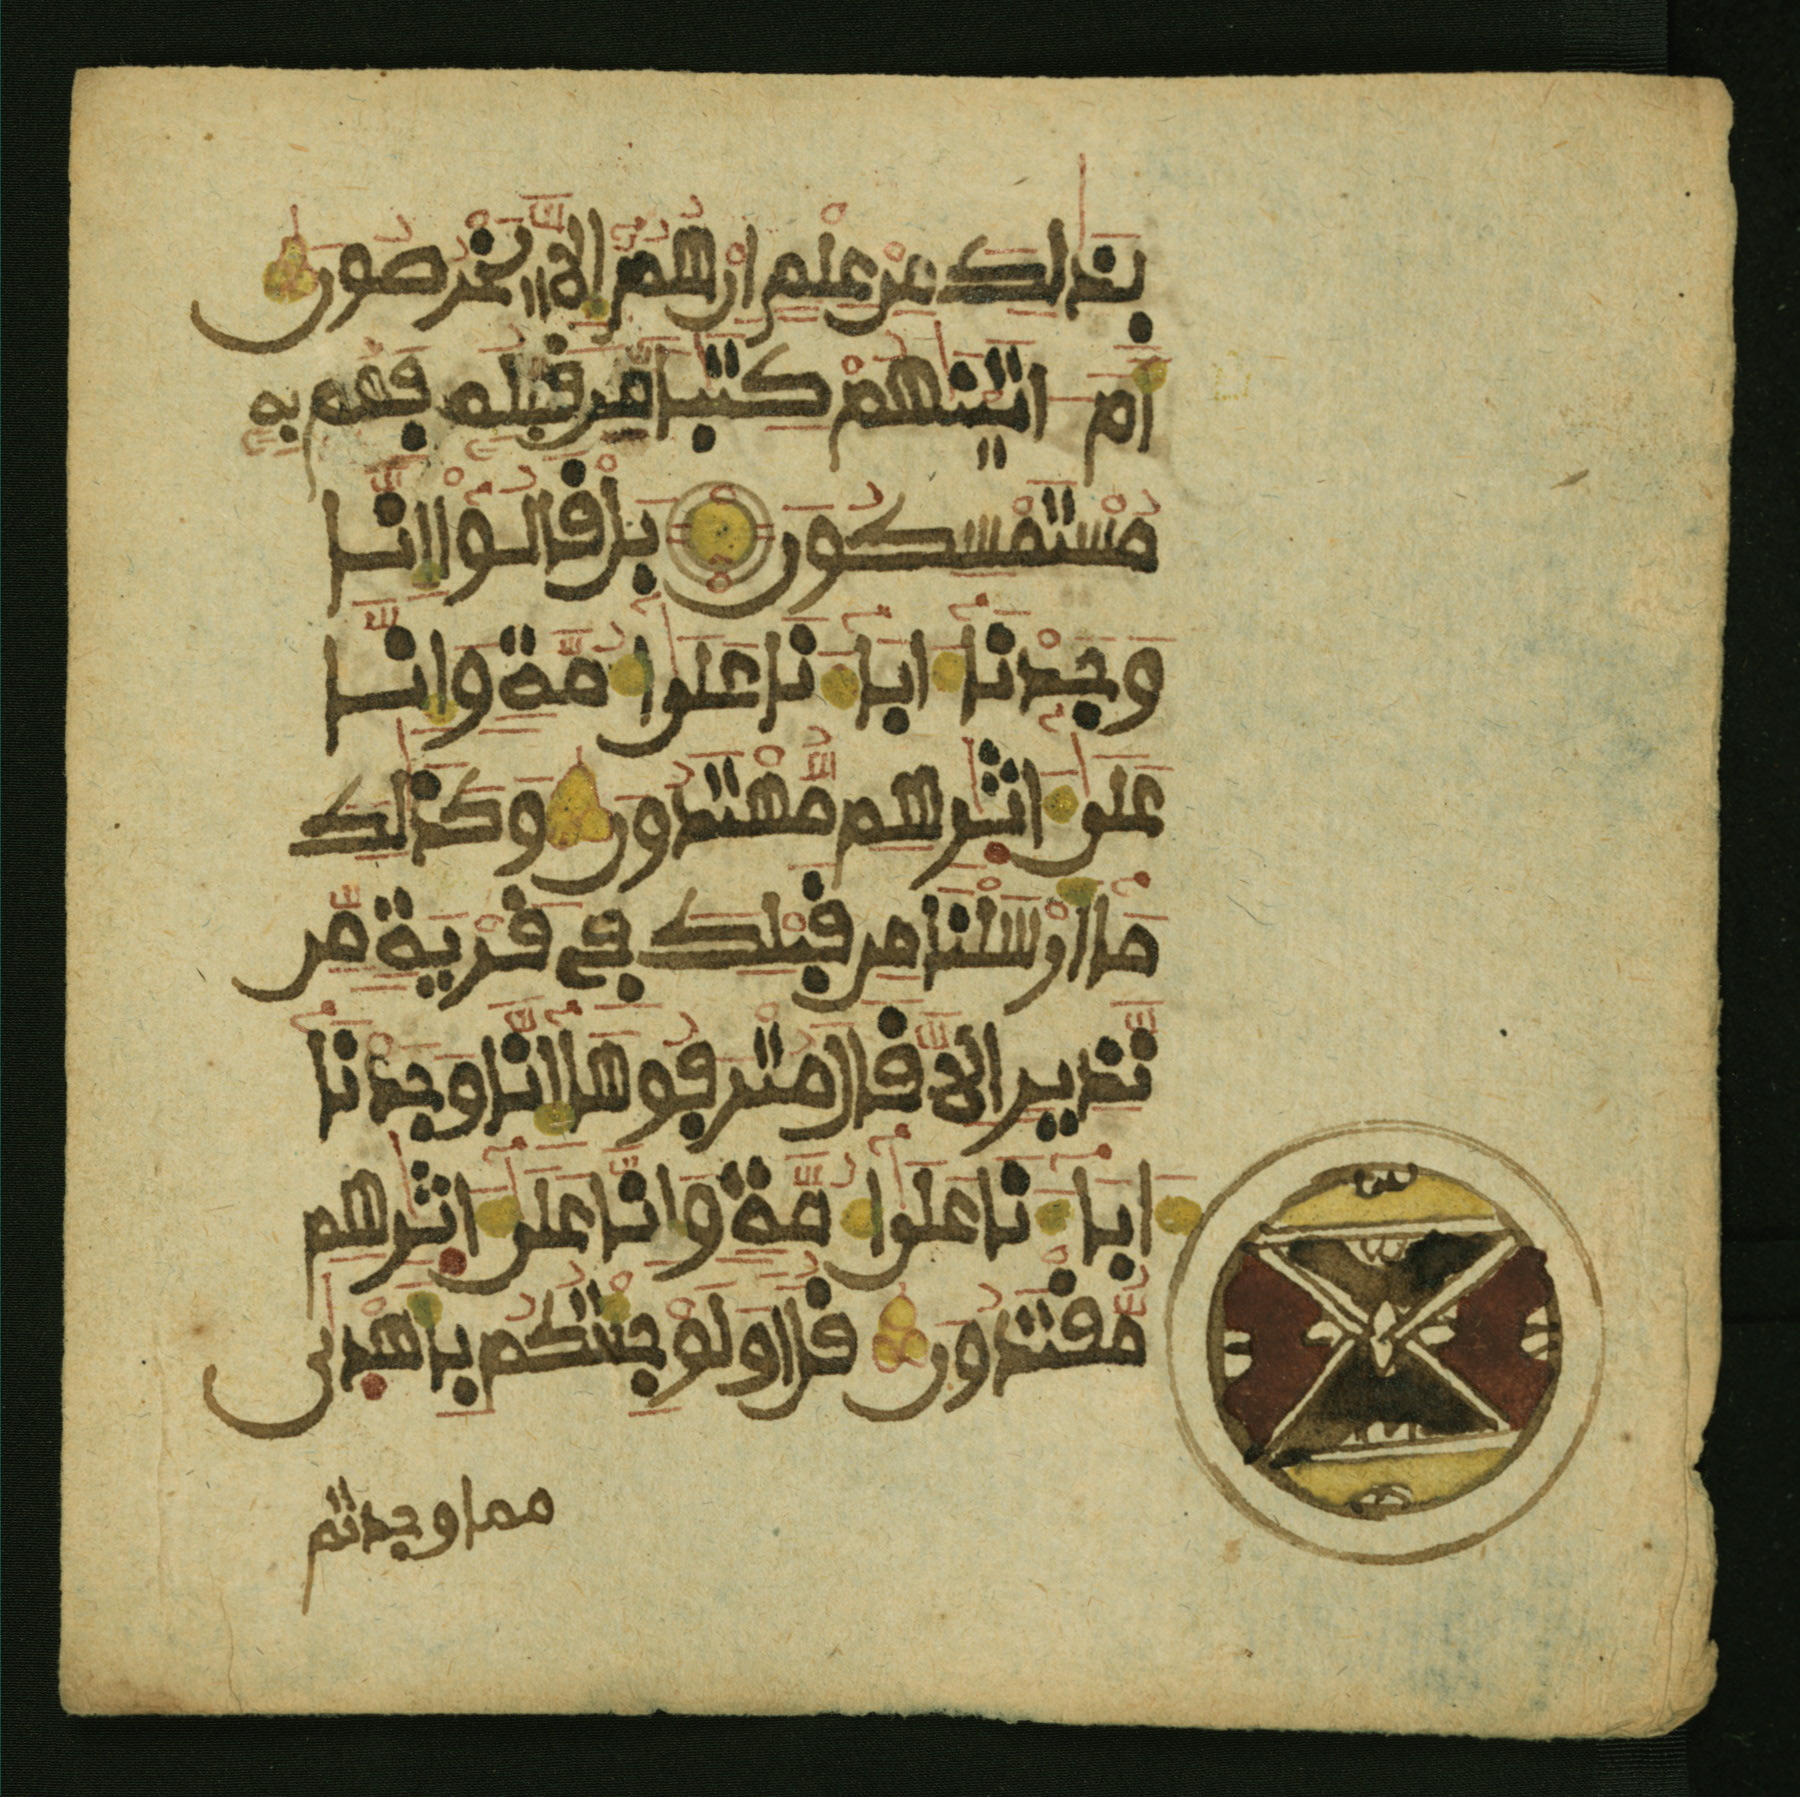 بذلك من علم ان هم الا يخرصون
ام اتينهم كتبا من قبله فهم به
مستمسكون بل قالوا انا
وجدنا اباءنا على امة وانا
على اثرهم مهتدون وكذلك
ما ارسلنا من قبلك في قرية من
نذير الا قال مترفوها انا وجدنا
اباءنا على امة وانا على اثرهم
مقتدون قل اولو جئتكم باهدى
مما وجدتم